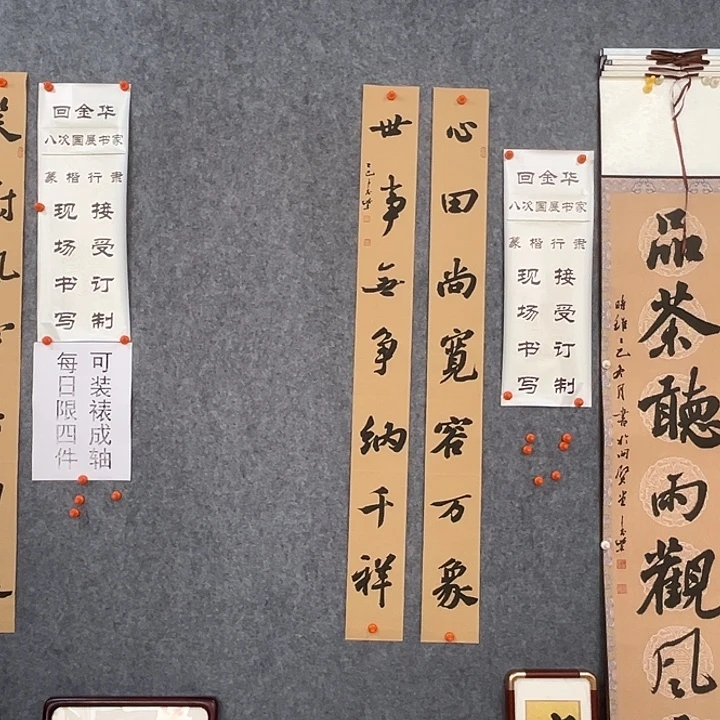 回金华
八次国展书家
篆楷行隶
接受订制
现场书写
可装裱成轴
每日限四件
心田尚宽容万象
世事无争纳千祥
回金华
八次国展书家
篆楷行隶
接受订制
现场书写
品茶聽雨觀风